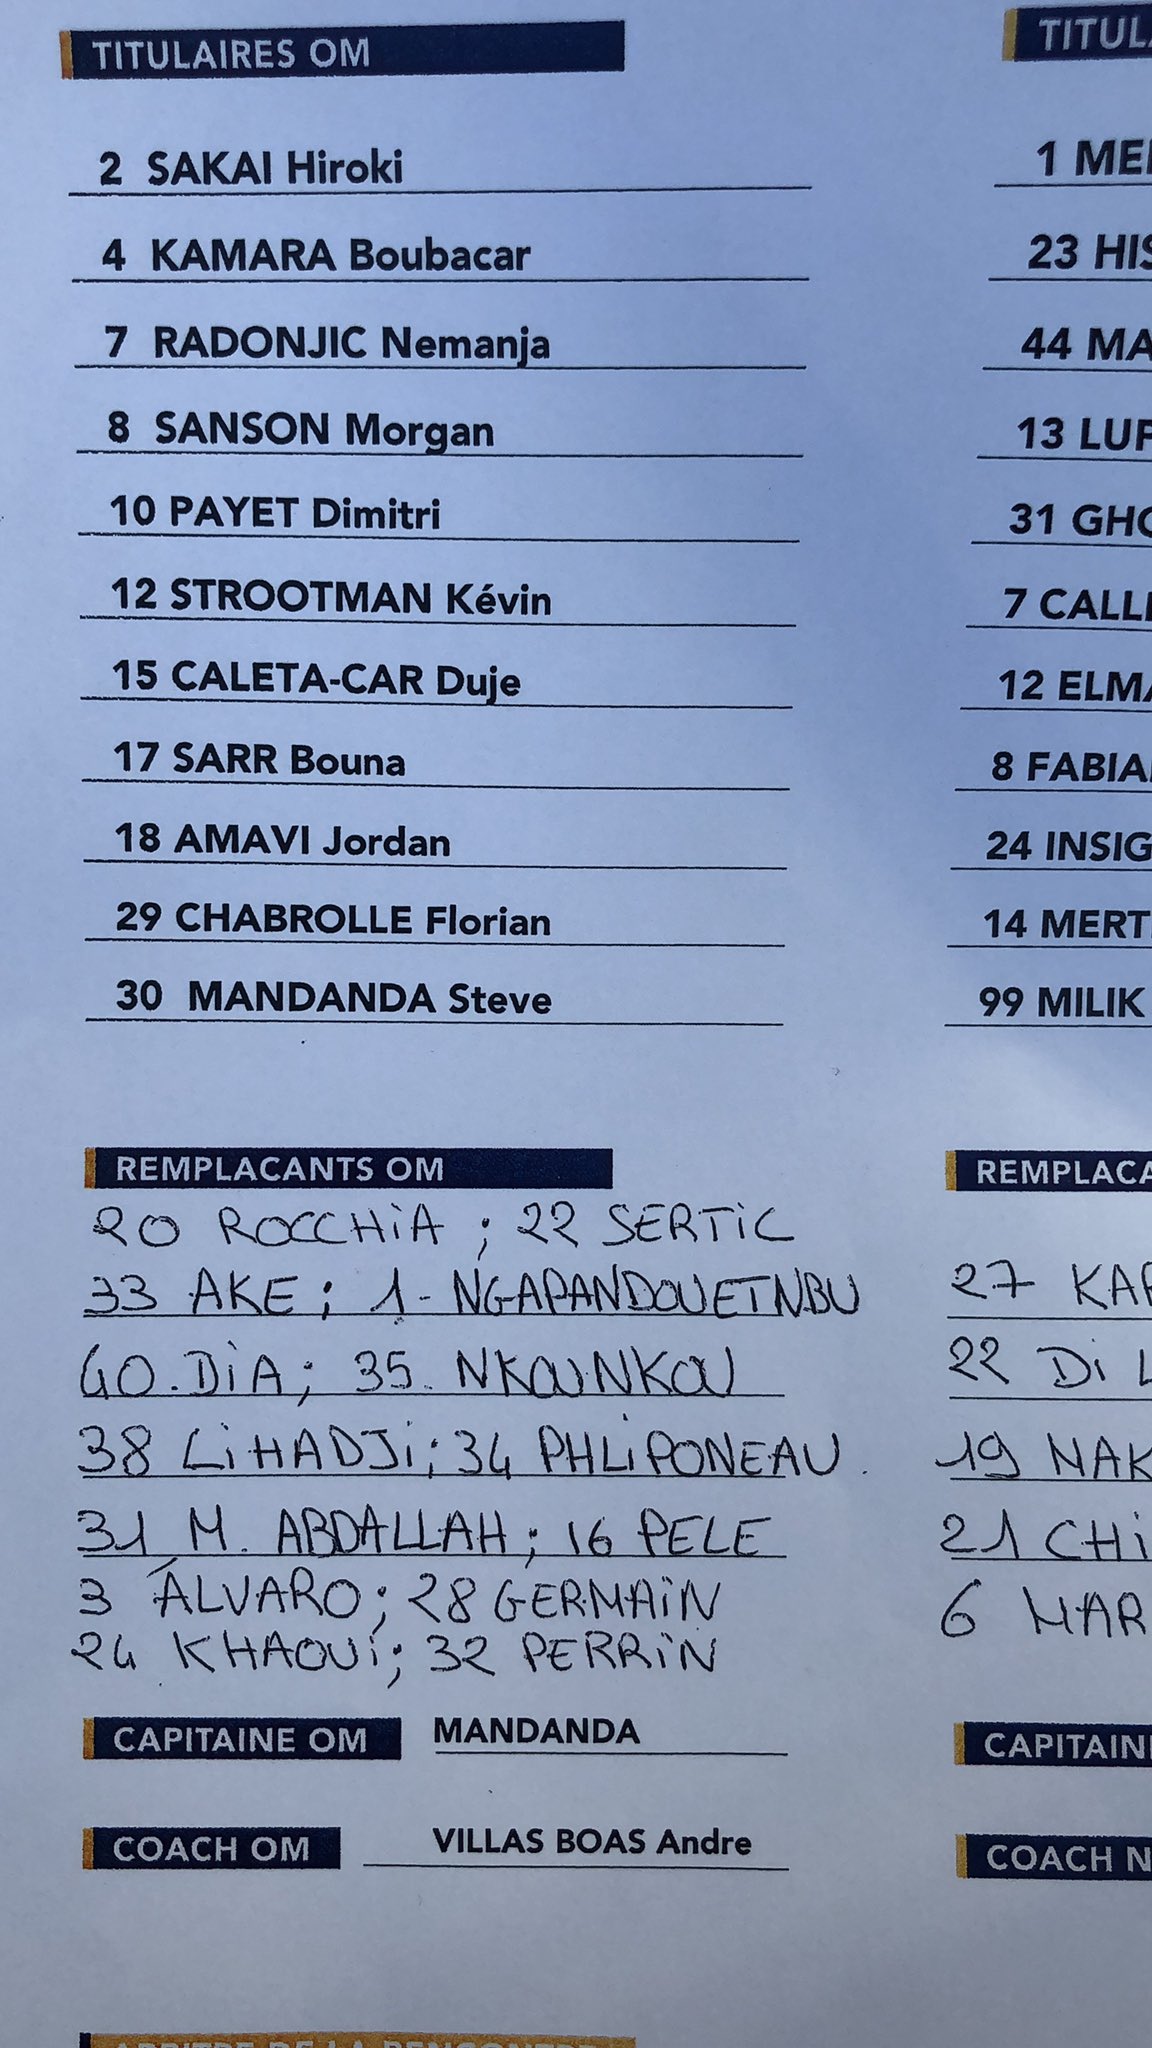 TITULAIRES OM
2 SAKAI Hiroki
4 KAMARA Boubacar
7 RADONJIC Nemanja
8 SANSON Morgan
10 PAYET Dimitri
12 STROOTMAN Kévin
15 CALETA-CAR Duje
17 SARR Bouna
18 AMAVI Jordan
29 CHABROLLE Florian
30 MANDANDA Steve
REMPLACANTS OM
20 ROCCHIA ; 22 SERTIC
33 AKE ; 1 - NGAPANDOUETNBU
40. DIA ; 35. NKOUNKOU
38 LIHADJI ; 34 PHLIPONEAU.
31 M. ABDALLAH ; 16 PELE
3 ÁLVARO ; 28 GERMAIN
24 KHAOUI ; 32 PERRIN
CAPITAINE OM MANDANDA
COACH OM VILLAS BOAS Andre
TITUL
1 ME
23 HIS
44 MA
13 LUP
31 GHO
7 CALL
12 ELMA
8 FABIA
24 INSIG
14 MERT
99 MILIK
REMPLACA
27 KAR
22 DI L
19 MAK
21 CHI
6 MAR
CAPITAIN
COACH N